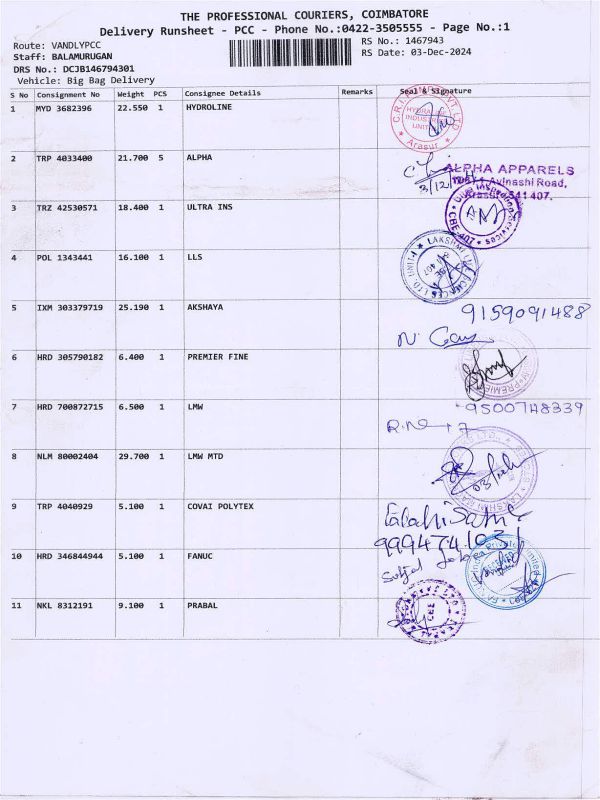 THE PROFESSIONAL COURIERS, COIMBATORE
Delivery Runsheet - PCC - Phone No.:0422-3505555 - Page No.:1
Route: VANDLYPCC
RS No.: 1467943
Staff: BALAMURUGAN
RS Date: 03-Dec-2024
DRS No.: DCJB146794301
Vehicle: Big Bag Delivery
S No Consignment No Weight PCS Consignee Details Remarks Seal & Signature
1 MYD 3682396 22.550 1 HYDROLINE
Arasur
2 TRP 4033400 21.700 5 ALPHA
ALPHA APPARELS
Avinashi Road,
Arasur 641 407.
3 TRZ 42530571 18.400 1 ULTRA INS
CBE 407
4 POL 1343441 16.100 1 LLS
5 IXM 303379719 25.190 1 AKSHAYA
9159091488
6 HRD 305790182 6.400 1 PREMIER FINE
7 HRD 700872715 6.500 1 LMW
9500748339
8 NLM 80002404 29.700 1 LMW MTD
9 TRP 4040929 5.100 1 COVAI POLYTEX
9994741031
10 HRD 346844944 5.100 1 FANUC
11 NKL 8312191 9.100 1 PRABAL